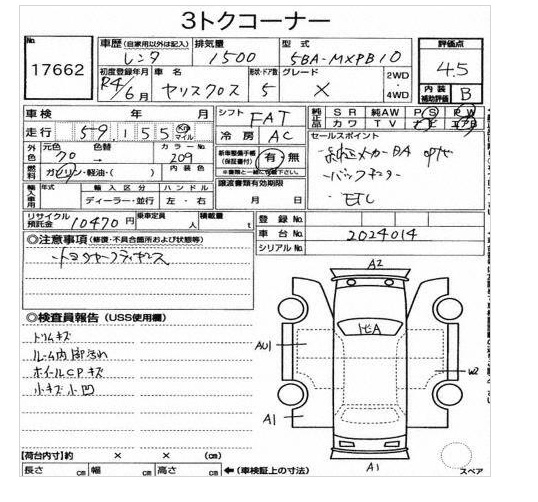 3トクコーナー
No.
17662
車歴(自家用以外は記入) レンタ
排気量 1500
型式 5BA-MXPB10
評価点 4.5
内装補助評価 B
初度登録年月 R4/6月
車名 ヤリスクロス
形状・ドア数 5
グレード X
2WD
4WD
車検 年 月
シフト FAT
純正品 SR 純AW PS PW
カワ TV ナビ エアB
走行 59,155 Km マイル
冷房 AC
セールスポイント
外色 元色 色替 カラーNo.
70 → 209
燃料 ガソリン・軽油・( ) 内装色
新車整備手帳(保証書付) 有・無
※書類と一緒に記載下さい。
・バックモニター
・ETC
輸入車用 年式 輸入区分 ハンドル
ディーラー・並行 左・右
譲渡書類有効期限
月 日
リサイクル預託金 10470円
乗定員 人
積載量 t
登録No.
車台No. 2024014
シリアルNo.
◎注意事項(修復・不具合箇所および状態等)
トヨタセーフティセンス
◎検査員報告(USS使用欄)
トリムキズ
ルーム内部汚れ
ホイールCPキズ
小キズ小凹
A2
ヒA
AU1
W2
A1
A1
スペア
【荷台内寸】約 × × (cm)
長さ cm 幅 cm 高さ cm ←(車検証上の寸法)